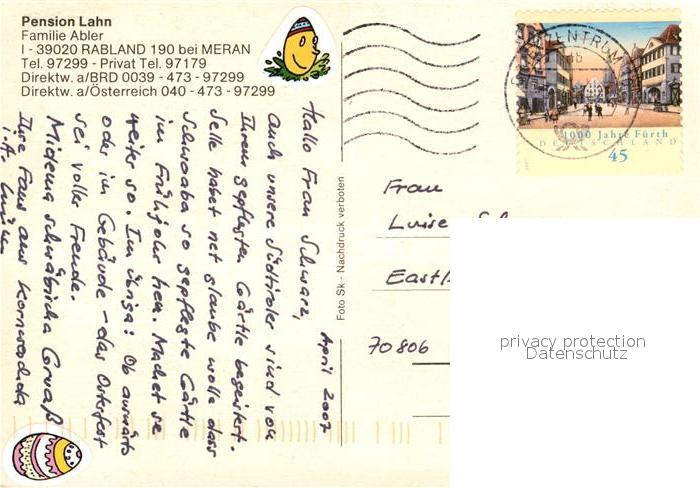 Pension Lahn
Familie Abler
I - 39020 RABLAND 190 bei MERAN
Tel. 97299 - Privat Tel. 97179
Direktw. a/BRD 0039 - 473 - 97299
Direktw. a/Österreich 040 - 473 - 97299
April 2007
Hallo Frau Schwarz,
auch unsere Südtiroler sind von
Ihrem gepflegten Gärtle begeistert.
Selle habet net glaube wolle dass
Schwoaba so gepflegte Gärtle
im Frühjohr hen. Machet se
weiter so. Im übriga: Ob auswärts
oder im Gebäude - das Osterfest
sei voller Freude.
Mit schwäbischa Gruaß
Ihre Fans aus Kornwesthei
i.A.
Foto Sk - Nachdruck verboten
BRIEFZENTRUM
1000 Jahre Fürth
DEUTSCHLAND
45
Frau
Luise
Eastl
70806
privacy protection
Datenschutz